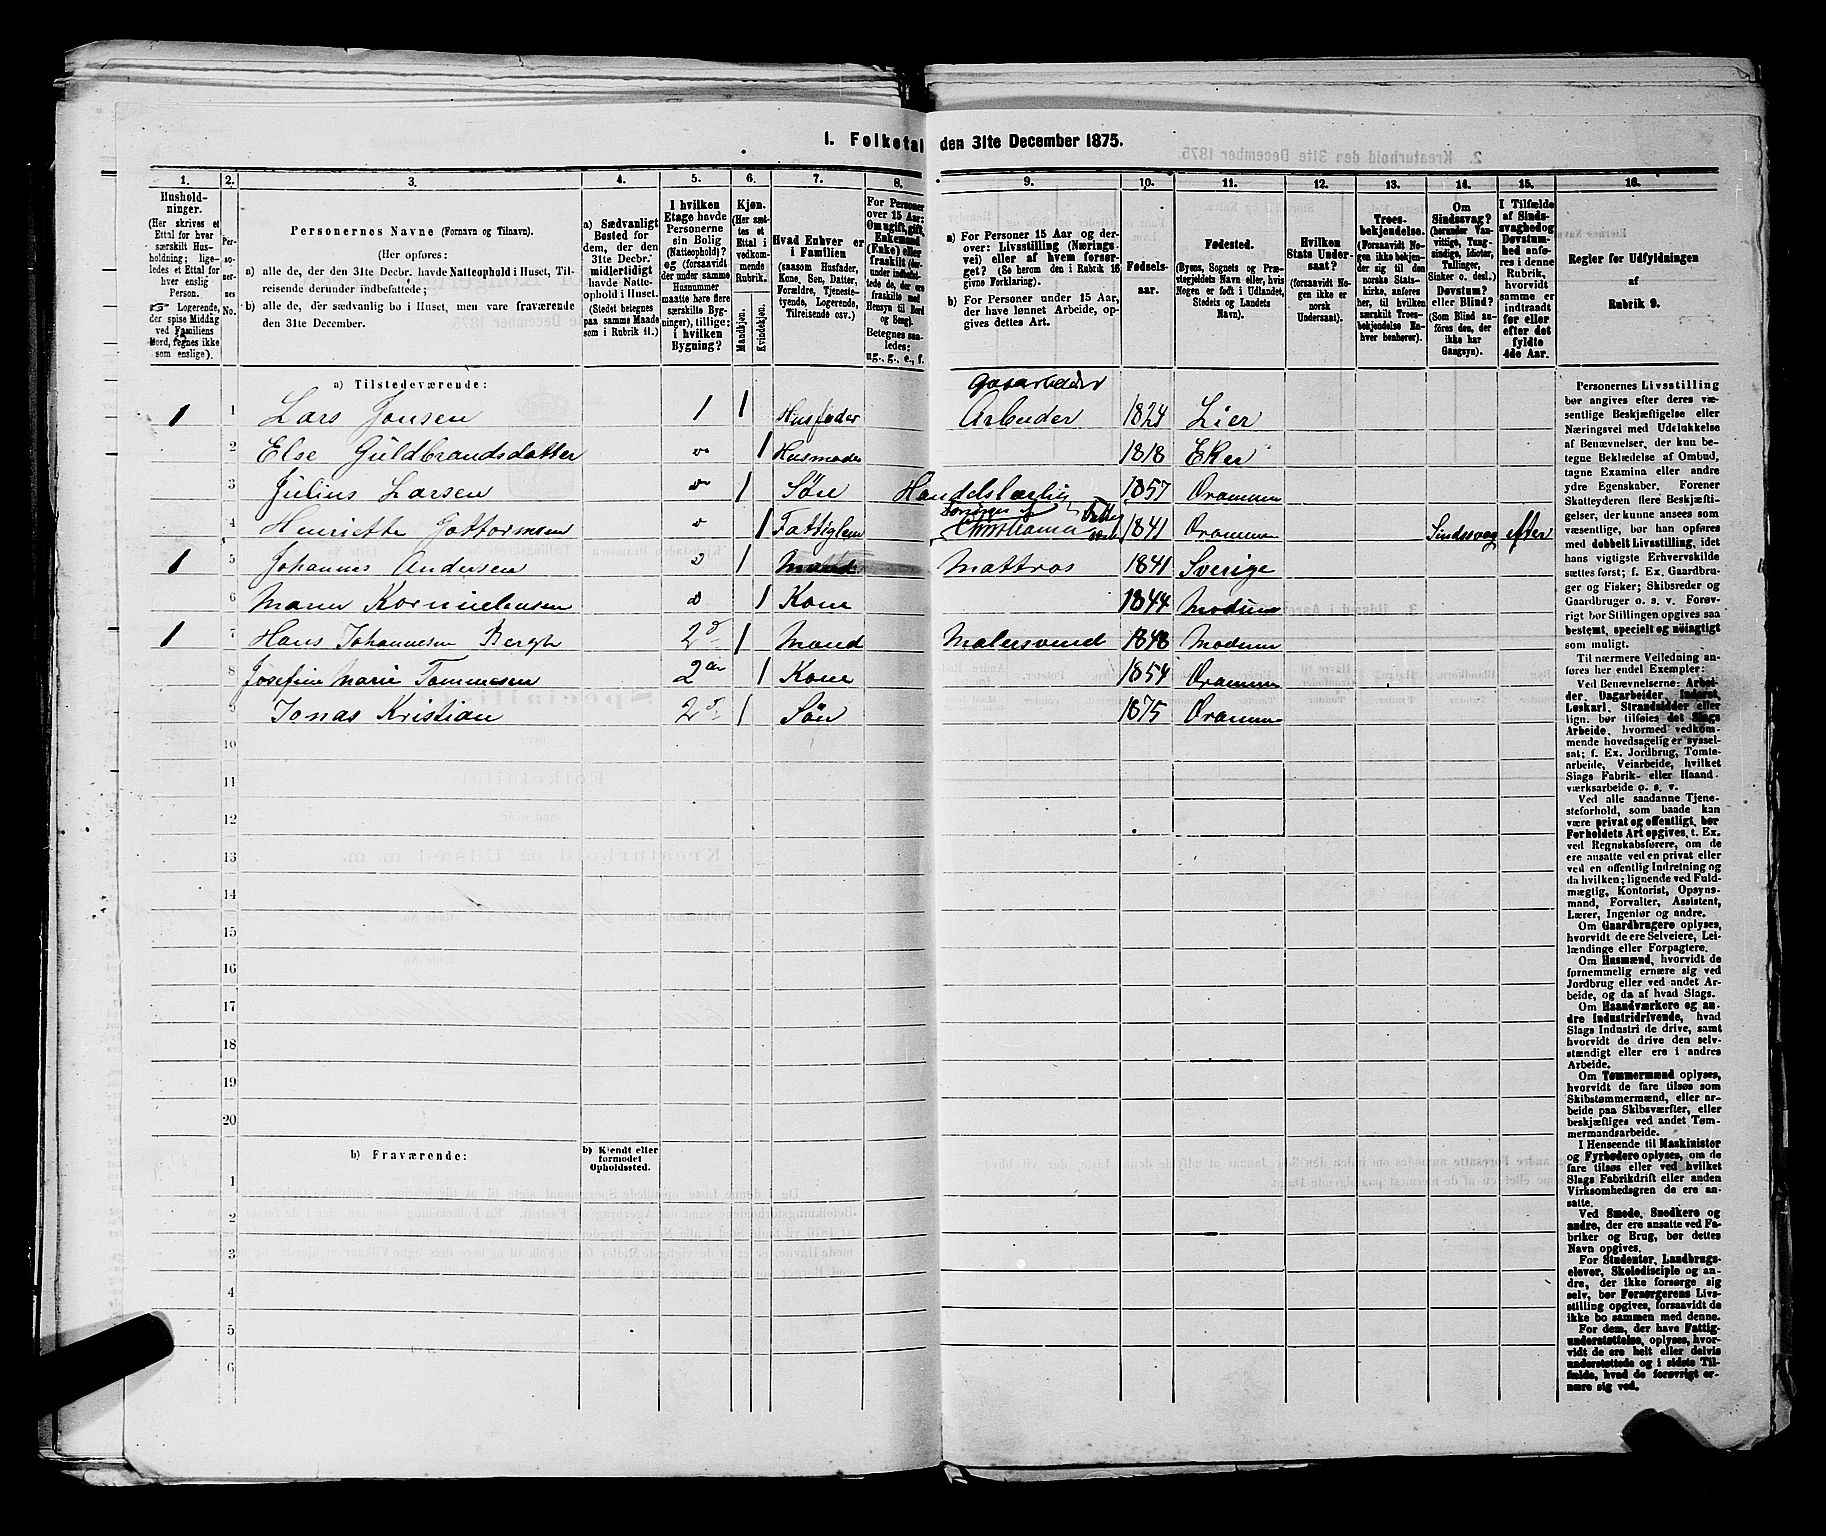 1. Folketal den 31te December 1875.
1. 2. 3. 4. 5. 6. 7. 8. 9. 10. 11. 12. 13. 14. 15. 16.
Hushold-
ninger.
(Her skrives et
Ettal for hver
særskilt Hus-
holdning; lige-
ledes et Ettal for
hver enslig
Person.
Logerende,
der spise Middag
ved Familiens
Bord, regnes ikke
som enslige).
Per-
so-
ner-
nes
No.
Personernes Navne (Fornavn og Tilnavn).
(Her opføres:
a) alle de, der den 31te Decbr. havde Natteophold i Huset, Til-
reisende derunder indbefattede;
b) alle de, der sædvanlig bo i Huset, men vare fraværende
den 31te December.
a) Sædvanligt
Bosted for
dem, der den
31te Decbr.
midlertidigt
havde Natte-
ophold i Huset.
(Stedet betegnes
paa samme Maade
som i Rubrik 11.)
I hvilken
Etage havde
Personerne
sin Bolig
(Natteophold)?
og (forsaavidt
der under samme
Husnummer
maatte høre flere
særskilte Byg-
ninger), tillige:
i hvilken
Bygning?
Kjøn.
(Her sæt-
tes et
Ettal i
vedkom-
mende
Rubrik.)
Mandkjøn.
Kvindekjøn.
Hvad Enhver er
i Familien
(saasom Husfader,
Kone, Søn, Datter,
Forældre, Tjeneste-
tyende, Logerende,
Tilreisende osv.)
For Personer
over 15 Aar:
Om ugift, gift,
Enkemand
(Enke) eller
fraskilt (der-
under indbefat-
tede de, der ere
fraskilte med
Hensyn til Bord
og Seng).
Betegnes saa-
ledes:
ug., g., e., f.
a) For Personer 15 Aar og der-
over: Livsstilling (Nærings-
vei) eller af hvem forsør-
get? (Se herom den i Rubrik 16
givne Forklaring).
b) For Personer under 15 Aar,
der have lønnet Arbeide, op-
gives dettes Art.
Fødsels-
aar.
Fødested.
(Byens, Sognets og Præ-
stegjeldets Navn eller, hvis
Nogen er født i Udlandet,
Stedets og Landets
Navn).
Hvilken
Stats Under-
saat?
(forsaavidt No-
gen ikke er
norsk
Undersaat).
Troes-
bekjendelse.
(Forsaavidt No-
gen ikke bekjen-
der sig til den
norske Stats-
kirke, anføres
her, til hvilken
særskilt Troes-
bekjendelse En-
hver henhører).
Om
Sindssvag?
(herunder Van-
vittige, Tung-
sindige, Idioter,
Tullinger,
Sinker o. desl.)
Døvstum?
eller Blind?
(Som Blind an-
føres den, der
ikke har
Gangsyn).
I Tilfælde
af Sinds-
svaghed og
Døvstum-
hed anfø-
res i denne
Rubrik,
hvorvidt
samme er
indtraadt
før eller
efter det
fyldte
4de Aar.
Regler for Udfyldningen
af
Rubrik 9.
a) Tilstedeværende:
Gasarbeider
1 1 Lars Jonsen 1 1 Husfader Arbeider 1824 Lier
2 Else Guldbrandsdatter 1 Husmoder 1818 Eker
3 Julius Larsen 1 Søn Handelslærling 1857 Drammen
4 Henriette Gottormsen 1 Fattiglem Christiania 1841 Drammen Sindssvag efter
1 5 Johannes Andersen 1 Mand Mattros 1841 Sverige
6 1 Kone 1844 Modum
1 7 Hans Johannesen Bergh 2 1 Mand Malersvend 1848 Modum
8 Josefine Marie Tommesen 2 1 Kone 1854 Drammen
9 Jonas Kristian 2 1 Søn 1875 Drammen
10
11
12
13
14
15
16
17
18
19
20
b) Fraværende:
b) Kjendt eller
formodet
Opholdssted.
1
2
3
4
5
6
Personernes Livsstilling
bør angives efter deres væ-
sentlige Beskjæftigelse eller
Næringsvei med Udelukkelse
af Benævnelser, der kun be-
tegne Beklædelse af Ombud,
tagne Examina eller andre
ydre Egenskaber. Forener
Skatteyderen flere Beskjæfti-
gelser, der kunne ansees som
væsentlige, bør han opføres
med dobbelt Livsstilling, idet
hans vigtigste Erhvervskilde
sættes først; f. Ex. Gaardbru-
ger og Fisker; Skibsreder og
Gaardbruger o. s. v. Forøv-
rigt bør Stillingen opgives saa
bestemt, specielt og nøiagtigt
som muligt.
Til nærmere Veiledning an-
føres her endel Exempler:
Ved Benævnelserne: Arbei-
der, Dagarbeider, Inderst,
Løskarl, Strandsidder eller
lign. bør tilføies det Slags
Arbeide, hvormed vedkom-
mende hovedsagelig er syssel-
sat; f. Ex. Jordbrug, Tomte-
arbeide, Veiarbeide, hvilket
Slags Fabrik- eller Haand-
værksarbeide o. s. v.
Ved alle saadanne Tjene-
steforhold, som baade kan
være privat og offentligt, bør
Forholdets Art opgives, t. Ex.
ved Regnskabsførere, om de
ere ansatte ved en privat eller
ved en offentlig Indretning og
da hvilken; lignende ved Fuld-
mægtig, Kontorist, Opsyns-
mand, Forvalter, Assistent,
Lærer, Ingeniør og andre.
Om Gaardbrugere oplyses,
hvorvidt de ere Selveiere, Lei-
lændinge eller Forpagtere.
Om Husmænd, hvorvidt de
fornemmelig ernære sig ved
Jordbrug eller ved andet Ar-
beide, og da af hvad Slags.
Om Haandværkere og an-
dre Industridrivende, hvad
Slags Industri de drive, samt
hvorvidt de drive den selv-
stændigt eller ere i andres
Arbeide.
Om Tømmermænd oplyses,
hvorvidt de fare tilsøs som
Skibstømmermænd, eller ar-
beide paa Skibsværfter, eller
beskjæftiges ved andet Tøm-
mermandsarbeide.
I Henseende til Maskinister
og Fyrbødere oplyses, om de
fare tilsøs eller ved hvilket
Slags Fabrikdrift eller anden
Virksomhedsgren de ere an-
satte.
Ved Smede, Snedkere og
andre, der ere ansatte ved Fa-
briker og Brug, bør dettes
Navn opgives.
For Studenter, Landbrugs-
elever, Skoledisciple og an-
dre, der ikke forsørge sig
selv, bør Forsørgerens Livs-
stilling opgives, forsaavidt de
ikke bo sammen med denne.
For dem, der have Fattig-
understøttelse, oplyses, hvor-
vidt de ere helt eller delvis
understøttede og i sidste Til-
fælde, hvad de forøvrigt er-
nære sig ved.